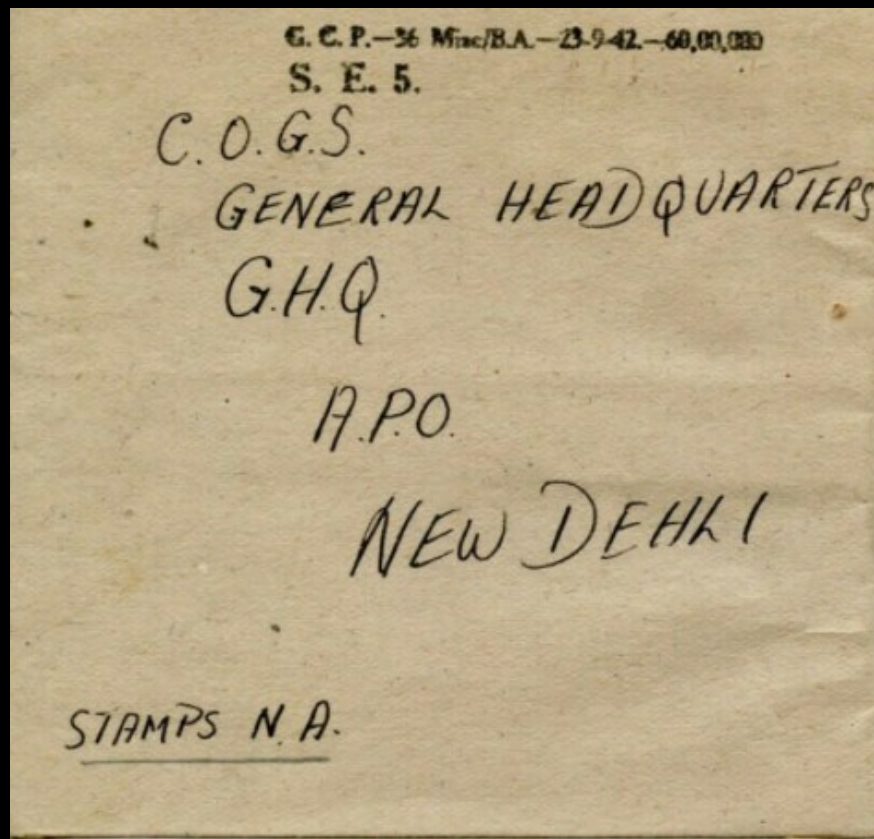 G. C. P.—36 Misc/B.A.—23-9-42.—60,00,000
S. E. 5.
C.O.G.S.
GENERAL HEADQUARTERS
G.H.Q.
A.P.O.
NEW DEHLI
STAMPS N.A.